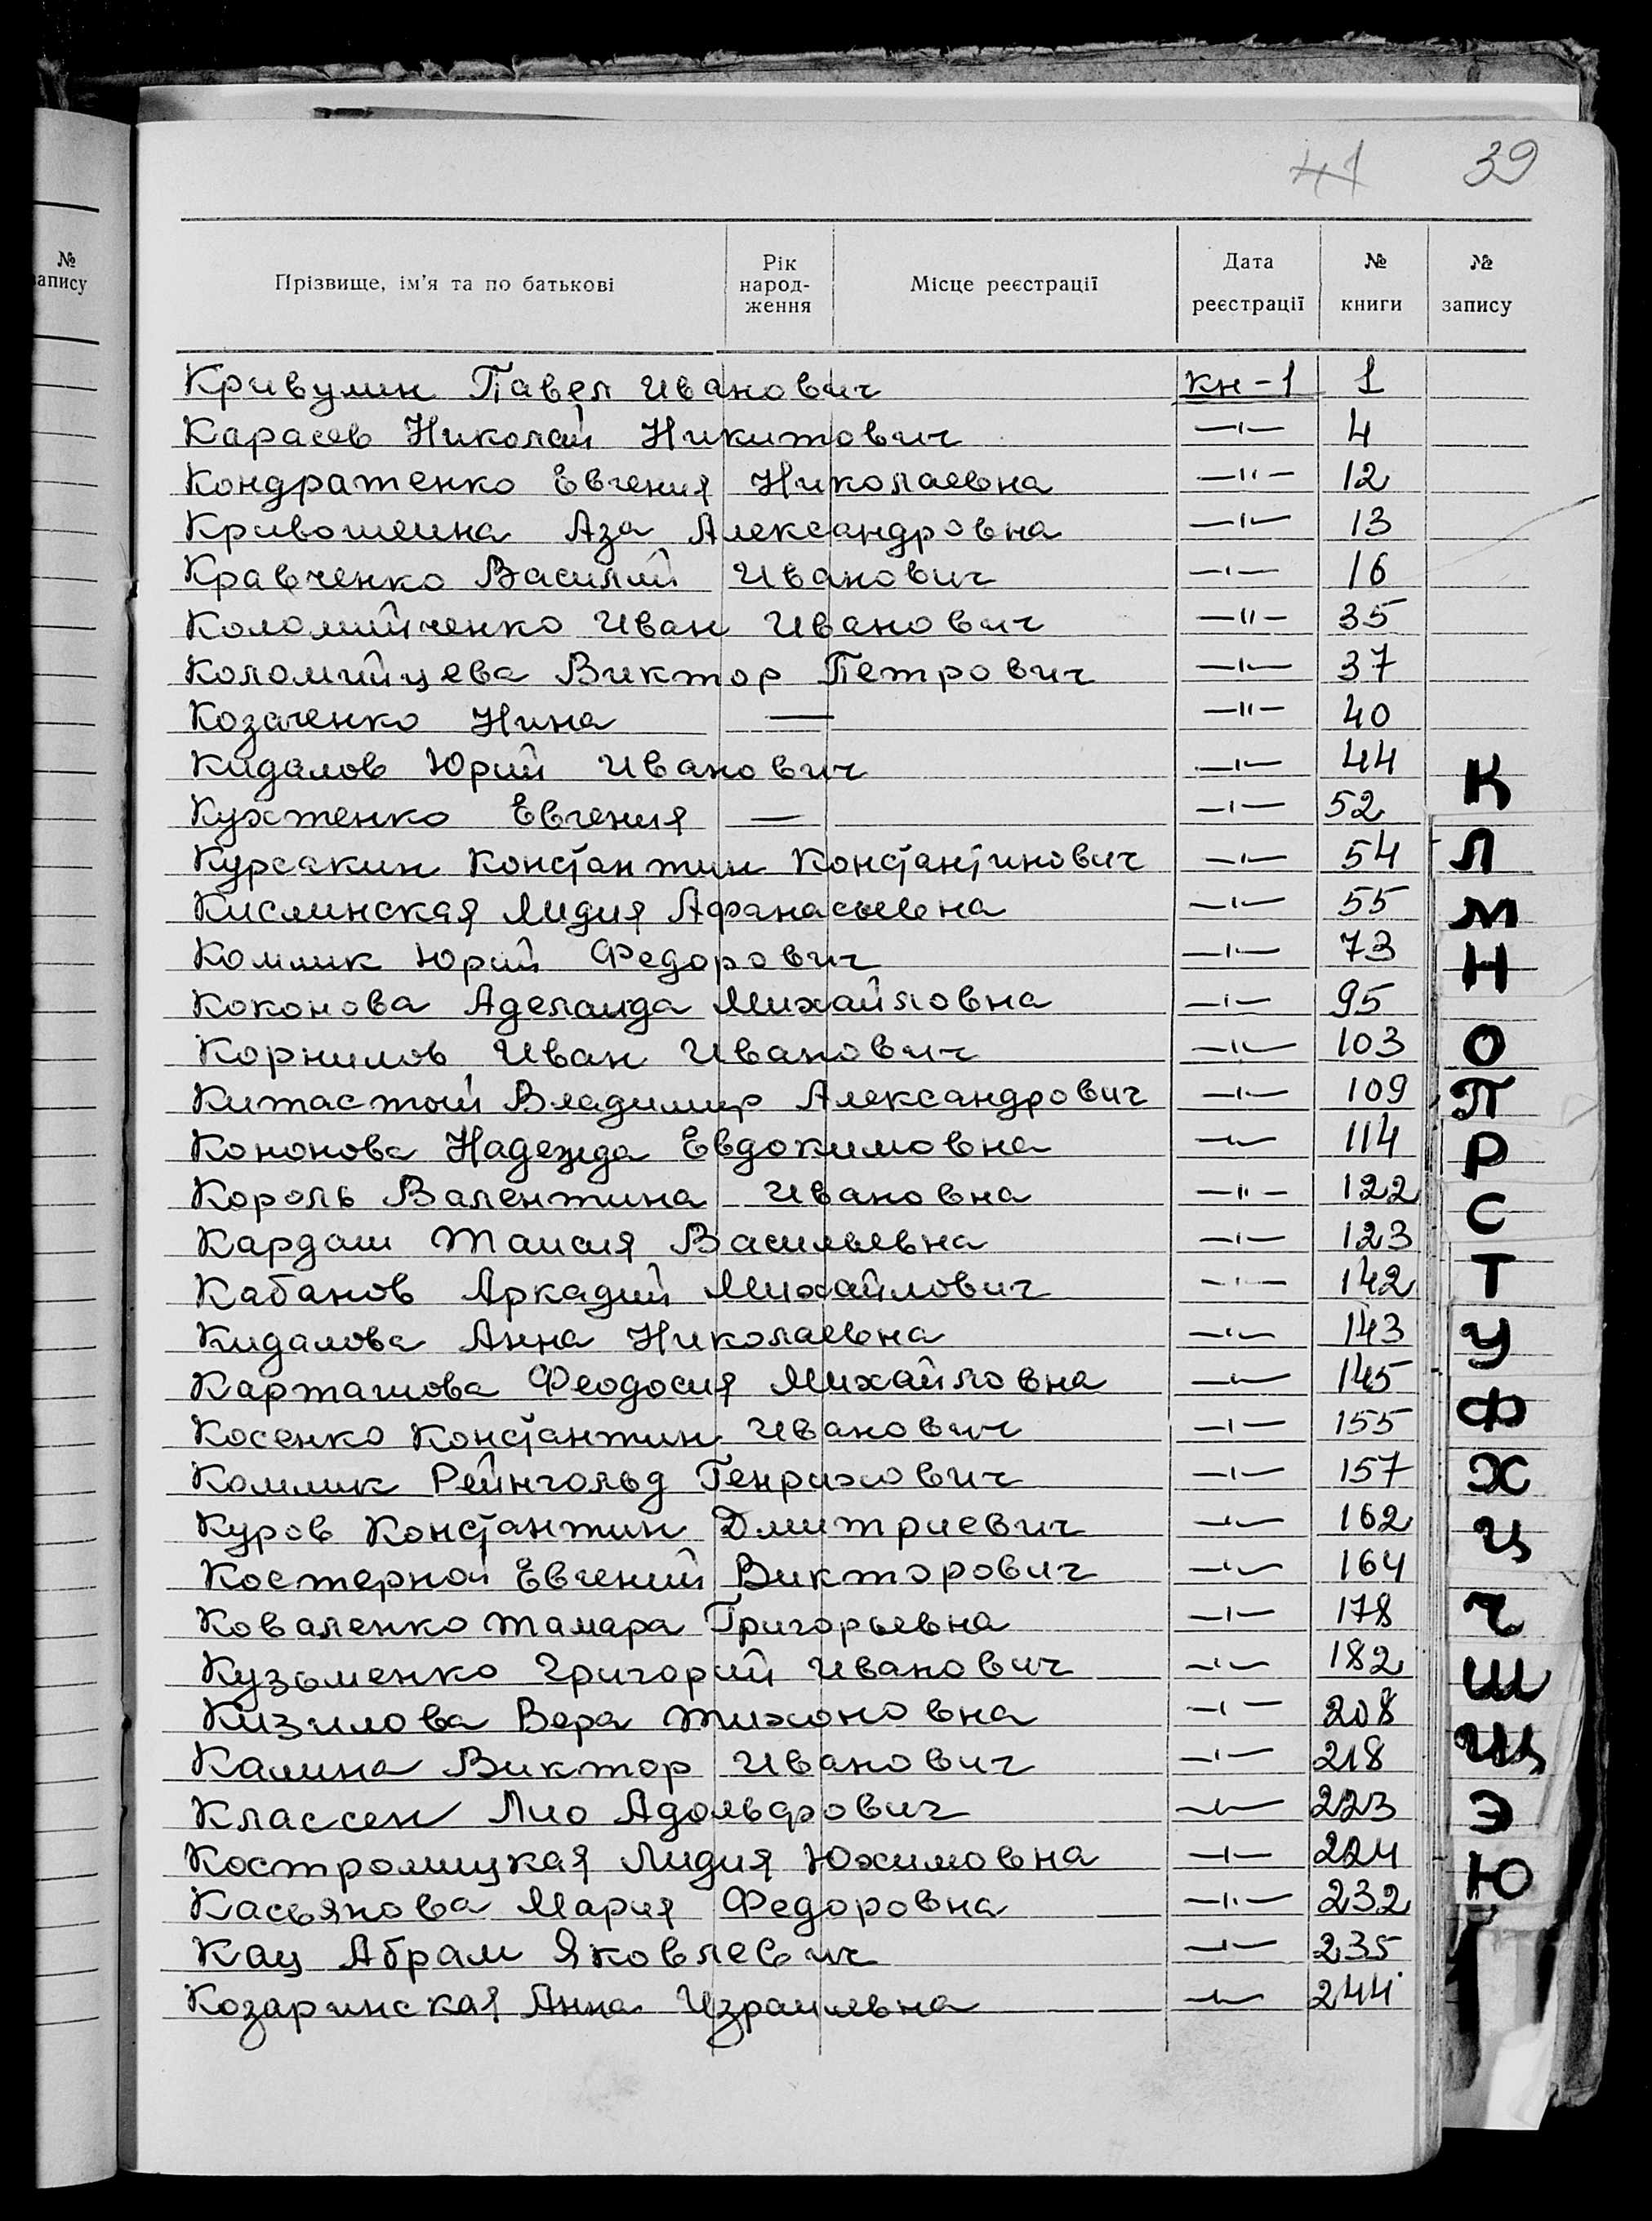 41 39
№
запису
Прізвище, ім'я та по батькові
Рік
народ-
ження
Місце реєстрації
Дата
реєстрації
№
книги
№
запису
Кривулин Павел Иванович кн-1 1
Карасев Николай Никитович —"— 4
Кондратенко Евгения Николаевна —"— 12
Кривошеина Аза Александровна —"— 13
Кравченко Василий Иванович —"— 16
Коломийченко Иван Иванович —"— 35
Коломийцева Виктор Петрович —"— 37
Козаченко Нина — —"— 40
Кидалов Юрий Иванович —"— 44
Кухтенко Евгения — —"— 52
Курсакин Константин Константинович —"— 54
Кислинская Лидия Афанасьевна —"— 55
Комлик Юрий Федорович —"— 73
Коконова Аделаида Михайловна —"— 95
Корнилов Иван Иванович —"— 103
Китастый Владимир Александрович —"— 109
Кононова Надежда Евдокимовна —"— 114
Король Валентина Ивановна —"— 122
Кардаш Таисия Васильевна —"— 123
Кабанов Аркадий Михайлович —"— 142
Кидалова Анна Николаевна —"— 143
Карташова Феодосия Михайловна —"— 145
Косенко Константин Иванович —"— 155
Комлик Рейнгольд Генрихович —"— 157
Куров Константин Дмитриевич —"— 162
Костерной Евгений Викторович —"— 164
Коваленко Тамара Григорьевна —"— 178
Кузьменко Григорий Иванович —"— 182
Кизилова Вера Тихоновна —"— 208
Калина Виктор Иванович —"— 218
Классен Лио Адольфович —"— 223
Костромицкая Лидия Юхимовна —"— 224
Касьянова Мария Федоровна —"— 232
Кац Абрам Яковлевич —"— 235
Козаринская Анна Израильвна —"— 244
К
Л
М
Н
О
П
Р
С
Т
У
Ф
Х
Ц
Ч
Ш
Щ
Э
Ю